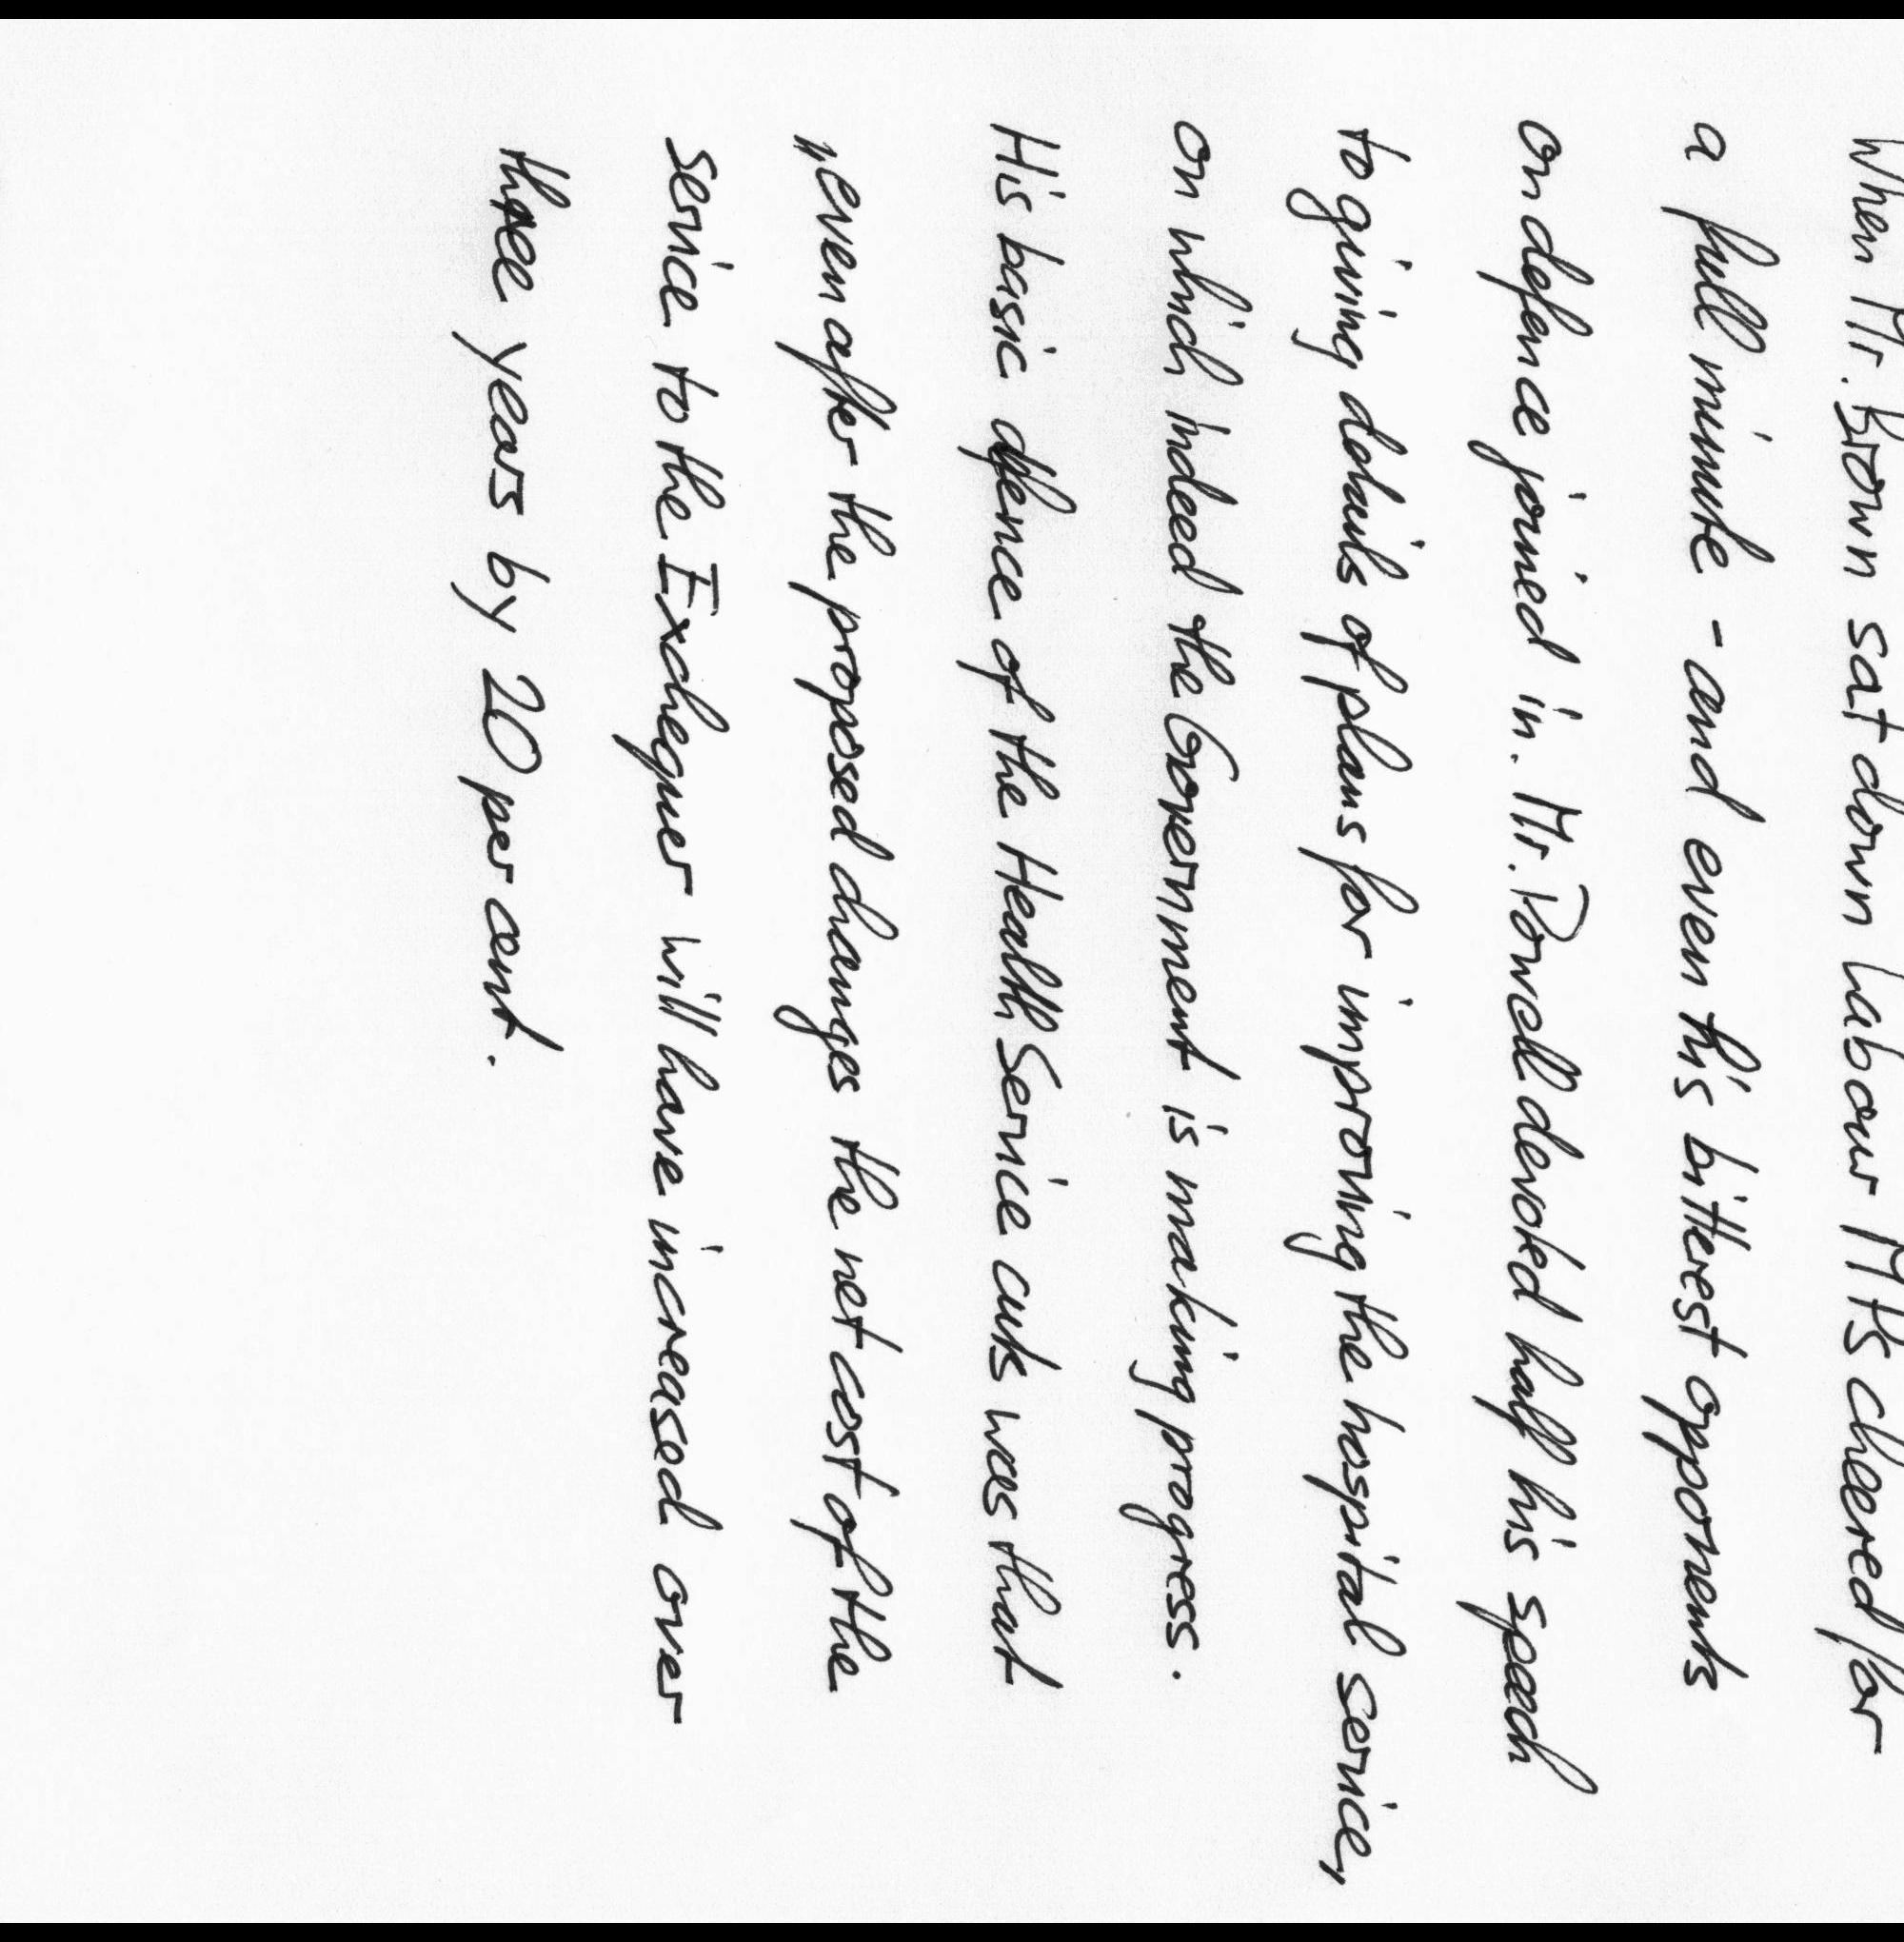 When Mr. Brown sat down Labour MPs cheered for
a full minute - and even his bitterest opponents
on defence joined in. Mr. Powell devoted half his speech
to giving details of plans for improving the hospital service,
on which indeed the Government is making progress.
His basic defence of the Health Service cuts was that
" even after the proposed changes the net cost of the
service to the Exchequer will have increased over
three years by 20 per cent.